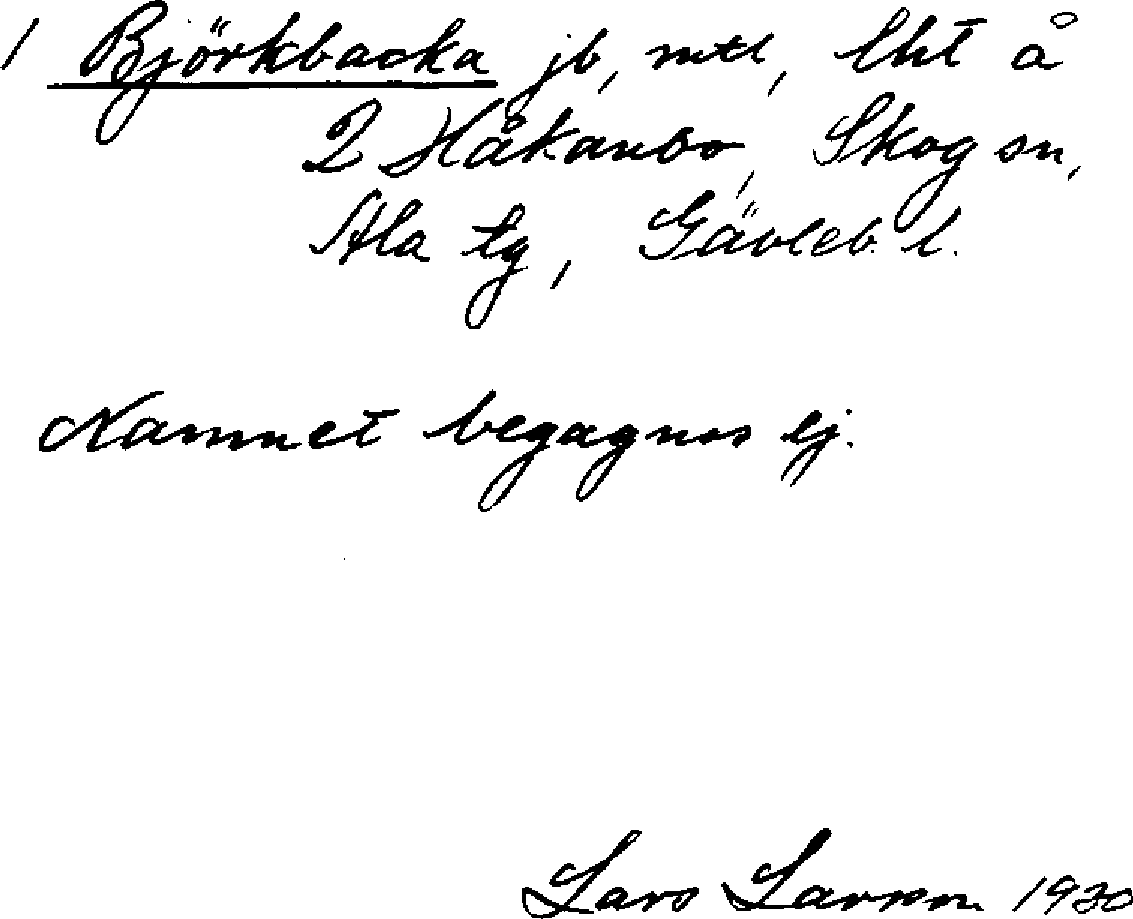 1 Björkbacka jb, mtl, lht å
2 Håkanbo, Skog sn,
Ala tg, Gävleb. l.
Namnet begagnas ej.
Lars Larson 1930